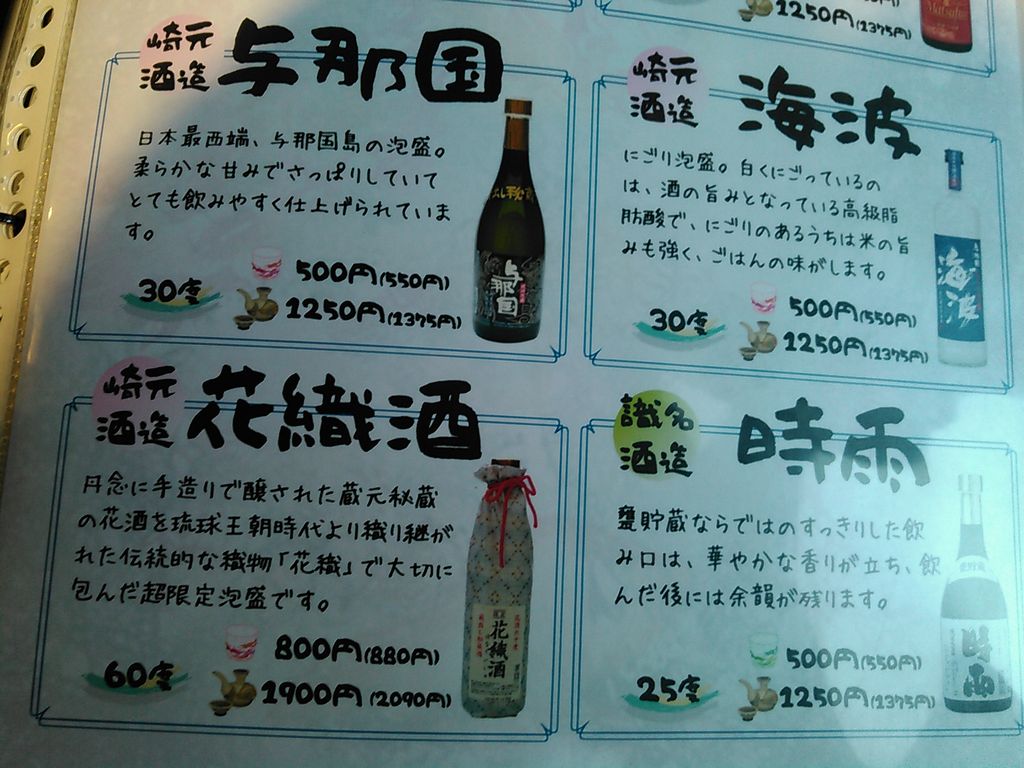 1250円(1375円)
崎元
酒造
与那国
日本最西端、与那国島の泡盛。
柔らかな甘みでさっぱりしていて
とても飲みやすく仕上げられていま
す。
30度
500円(550円)
1250円(1375円)
与那国
崎元
酒造
海波
にごり泡盛。白くにごっているの
は、酒の旨みとなっている高級脂
肪酸で、にごりのあるうちは米の旨
みも強く、ごはんの味がします。
30度
500円(550円)
1250円(1375円)
海波
崎元
酒造
花織酒
丹念に手造りで醸された蔵元秘蔵
の花酒を琉球王朝時代より織り継が
れた伝統的な織物「花織」で大切に
包んだ超限定泡盛です。
60度
800円(880円)
1900円(2090円)
花織酒
識名
酒造
時雨
甕貯蔵ならではのすっきりした飲
み口は、華やかな香りが立ち、飲
んだ後には余韻が残ります。
25度
500円(550円)
1250円(1375円)
時雨